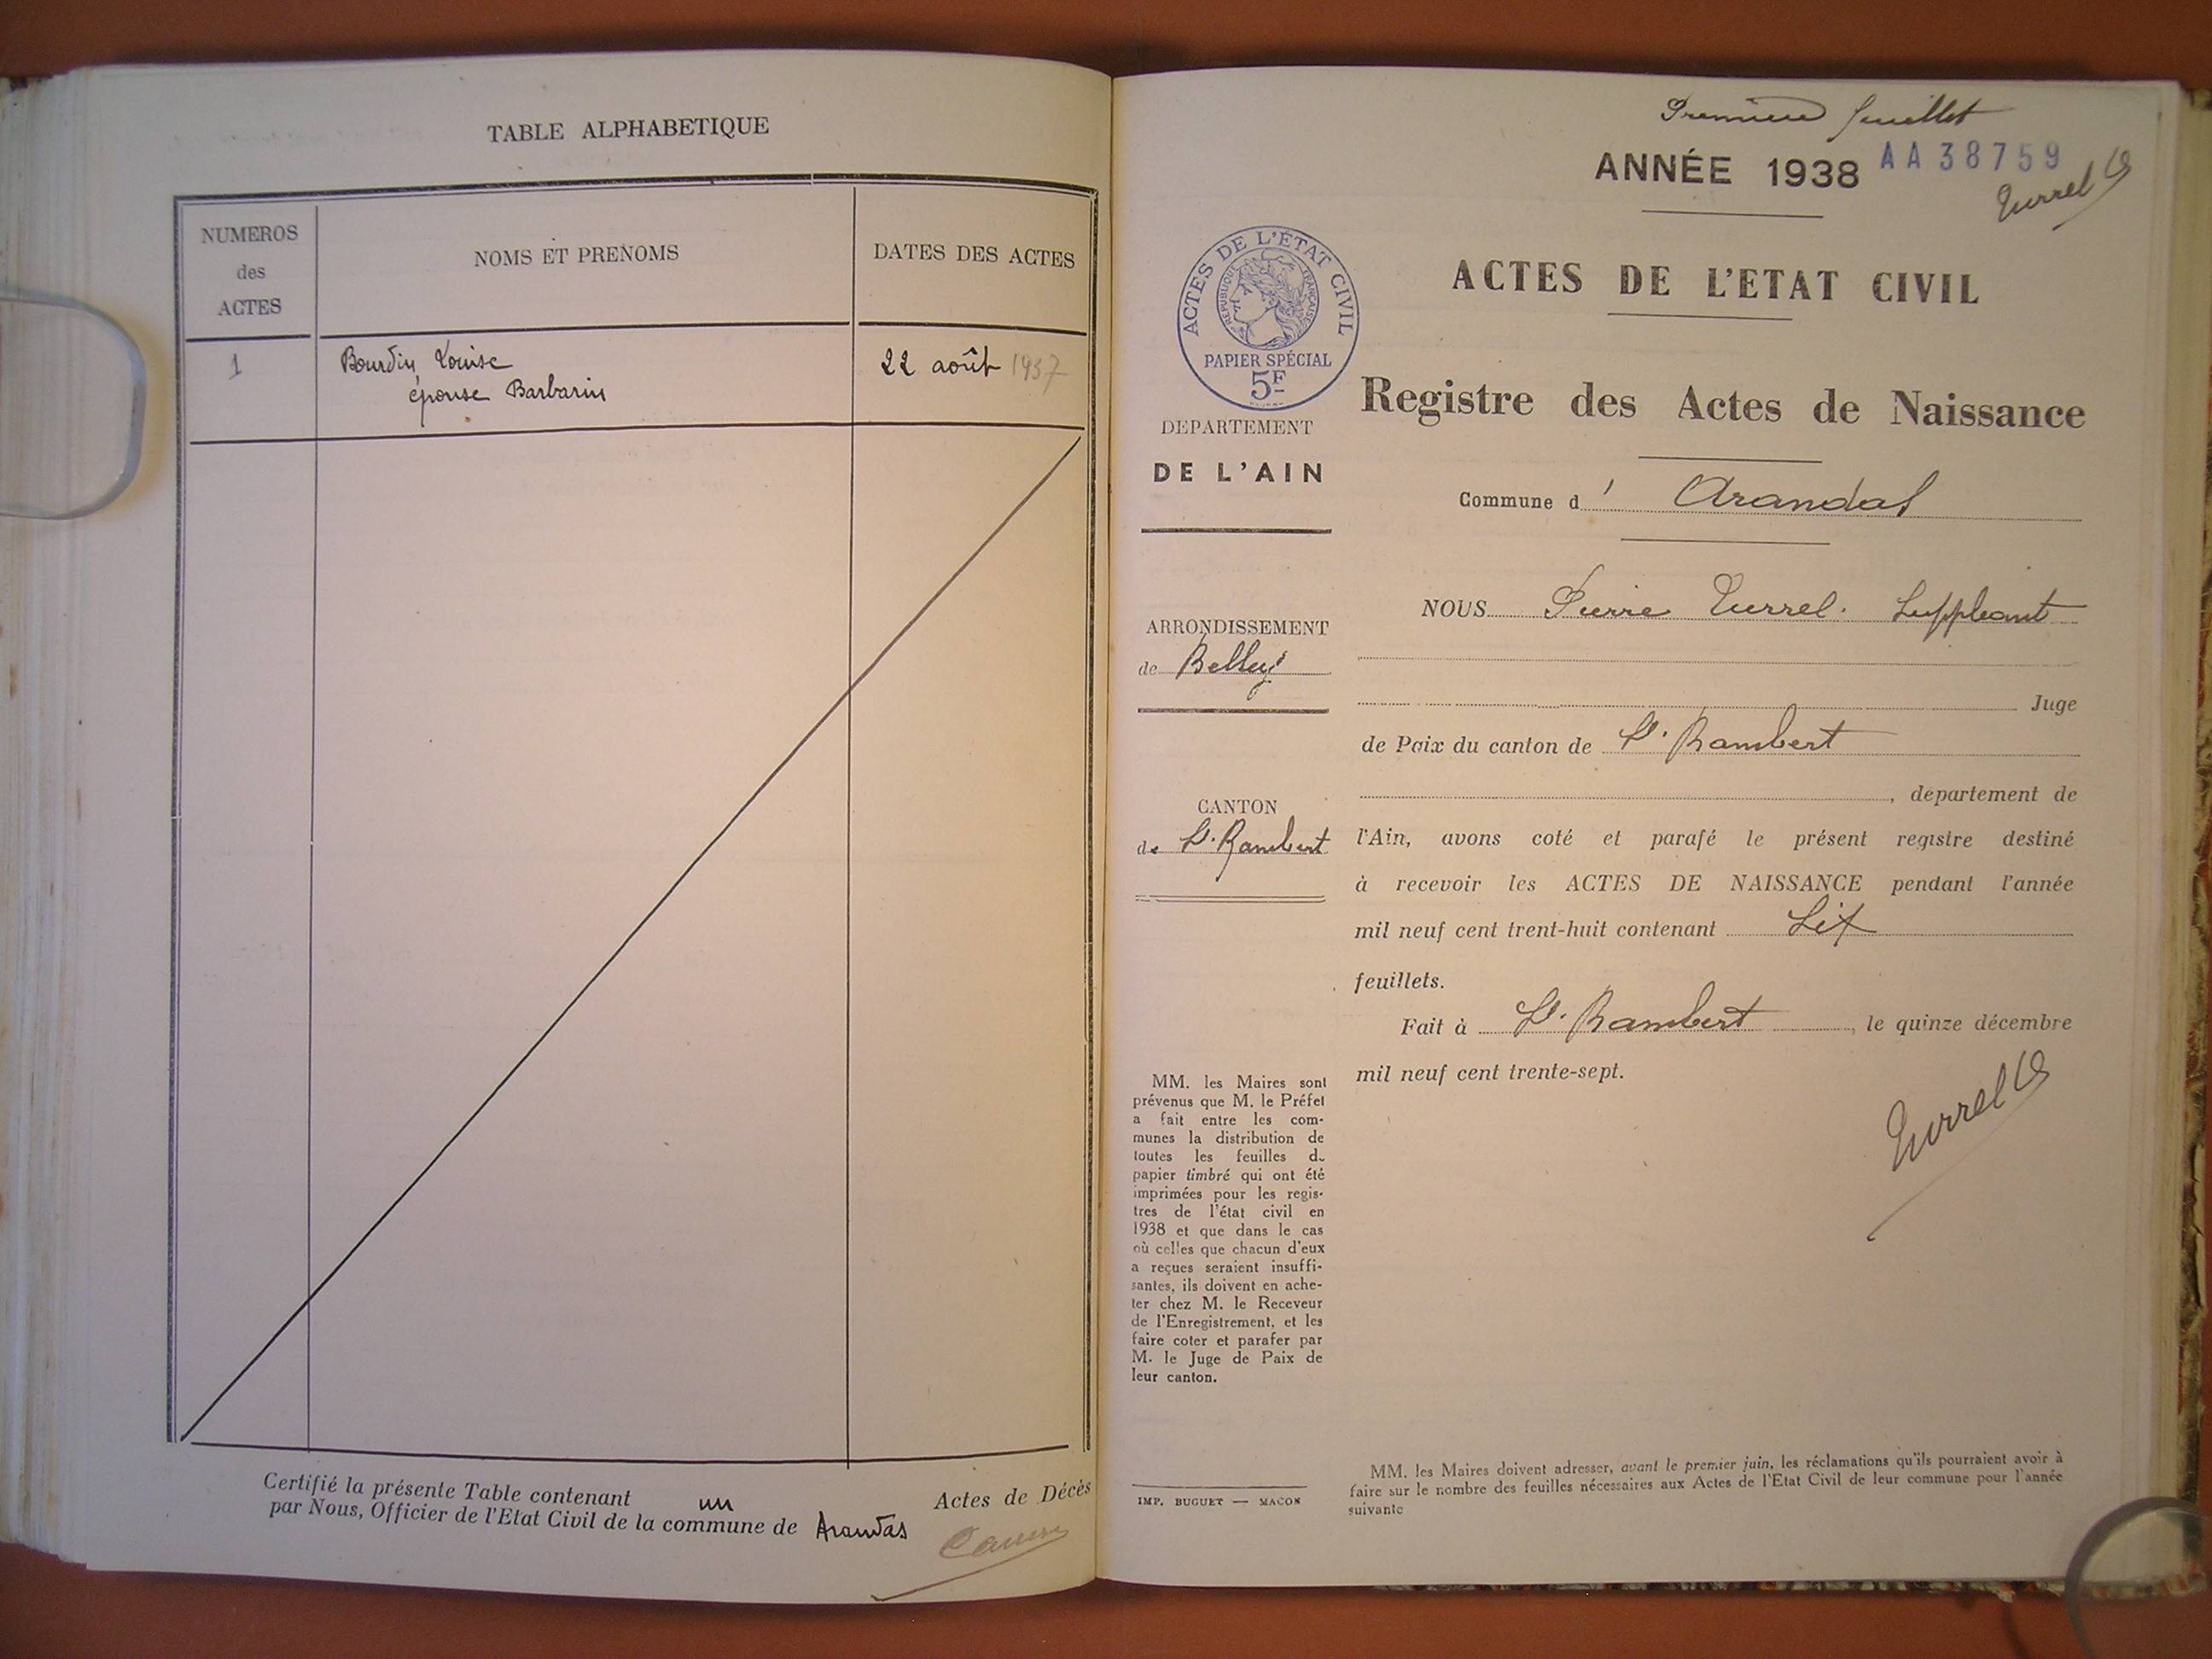 TABLE ALPHABETIQUE
NUMEROS
des
ACTES
NOMS ET PRENOMS
DATES DES ACTES
1
Bourdin Louise
22 août 1937
épouse Barbarin
Certifié la présente Table contenant un Actes de Décès
par Nous, Officier de l'Etat Civil de la commune de Arandas
Première feuillet
ANNÉE 1938
AA38759
Turrel
ACTES DE L'ÉTAT CIVIL
RÉPUBLIQUE FRANÇAISE
PAPIER SPÉCIAL
5F
ACTES DE L'ETAT CIVIL
Registre des Actes de Naissance
Commune d' Arandas
DEPARTEMENT
DE L'AIN
ARRONDISSEMENT
de Belley
CANTON
de St. Rambert
NOUS Pierre Turrel. Suppleant
Juge
de Paix du canton de St. Rambert
, departement de
l'Ain, avons coté et parafé le présent registre destiné
à recevoir les ACTES DE NAISSANCE pendant l'année
mil neuf cent trent-huit contenant Six
feuillets.
Fait à St. Rambert, le quinze décembre
mil neuf cent trente-sept.
Turrel
MM. les Maires sont
prévenus que M. le Préfet
a fait entre les com-
munes la distribution de
toutes les feuilles de
papier timbré qui ont été
imprimées pour les regis-
tres de l'état civil en
1938 et que dans le cas
où celles que chacun d'eux
a reçues seraient insuffi-
santes, ils doivent en ache-
ter chez M. le Receveur
de l'Enregistrement, et les
faire coter et parafer par
M. le Juge de Paix de
leur canton.
IMP. BUGUET — MACON
MM. les Maires doivent adresser, avant le premier juin, les réclamations qu'ils pourraient avoir à
faire sur le nombre des feuilles nécessaires aux Actes de l'Etat Civil de leur commune pour l'année
suivante